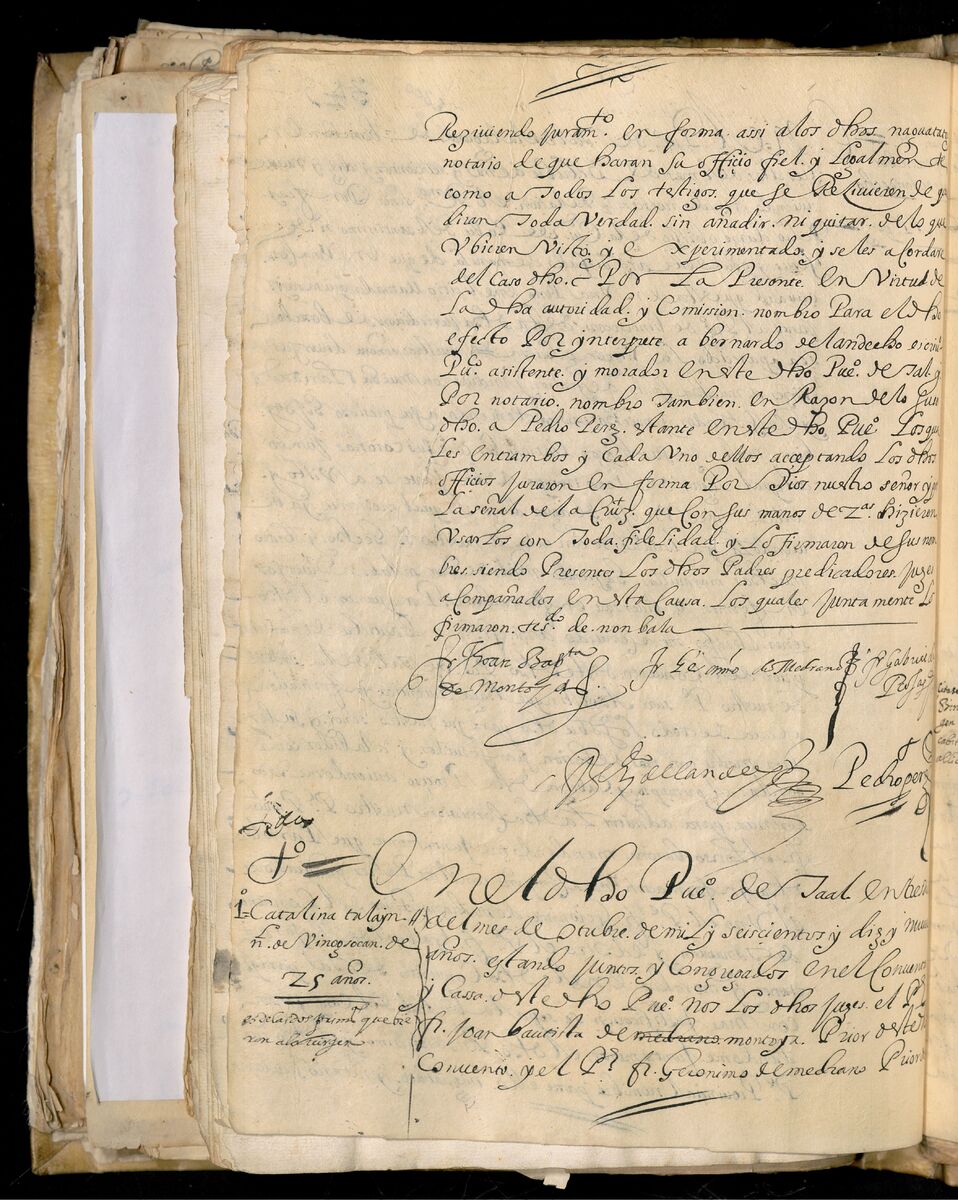 Reziviendo Juramto. en forma. assi a los dhos naguatatos
notario de que haran su officio fiel. y Legalmente
como a Todos Los testigos. que se Rezivieren de q
diran Toda Verdad. sin añadir. ni quitar. de lo que
Vbieren Visto. y experimentado. y se les acordare
del Caso dho. Por La Presente. en Virtud de
La dha autoridad. y Comission. nombro Para el dho
efecto Por ynterprete. a bernardo de landecho
Puo. asistente. y morador en este dho Pueo. de taal. y
Por notario. nombro Tambien. en Razon de lo Suso
dho. a Pedro Perez. estante en este dho Pueo Los qua
Les entrambos y Cada Vno dellos acceptando Los dhos
officios juraron en forma Por Dios nuestro señor y
La señal de la Cruz. que Con sus manos dezas. hizieron
Vsarlos con Toda fidelidad. y Lo firmaron de sus nom
bres. siendo Presentes Los dhos Padres predicadores. Juezes
acompañados en esta Causa. Los quales Junta mente Lo
firmaron. testdo. de. non bala
fr Joan Bapta
de Montoya
fr Germo de Medrano
fr Gabriel
de llandecho
Pedro perez
tesgo
1o
En el dho Pueo. de Taal. en
del mes de otubre. de mil y seiscientos y diez y nueve
1o= Catalina talayn.
n. de Vingosocan. de
25 años.
años. estando juntos. y Congregados en el Convento
y Cassa. deste dho Pueo. nos Los dhos juezes. el Pe
fr. joan bautista de medrano montoya. Prior deste dho
Convento. y el Pe fr. Geronimo de medrano Prior